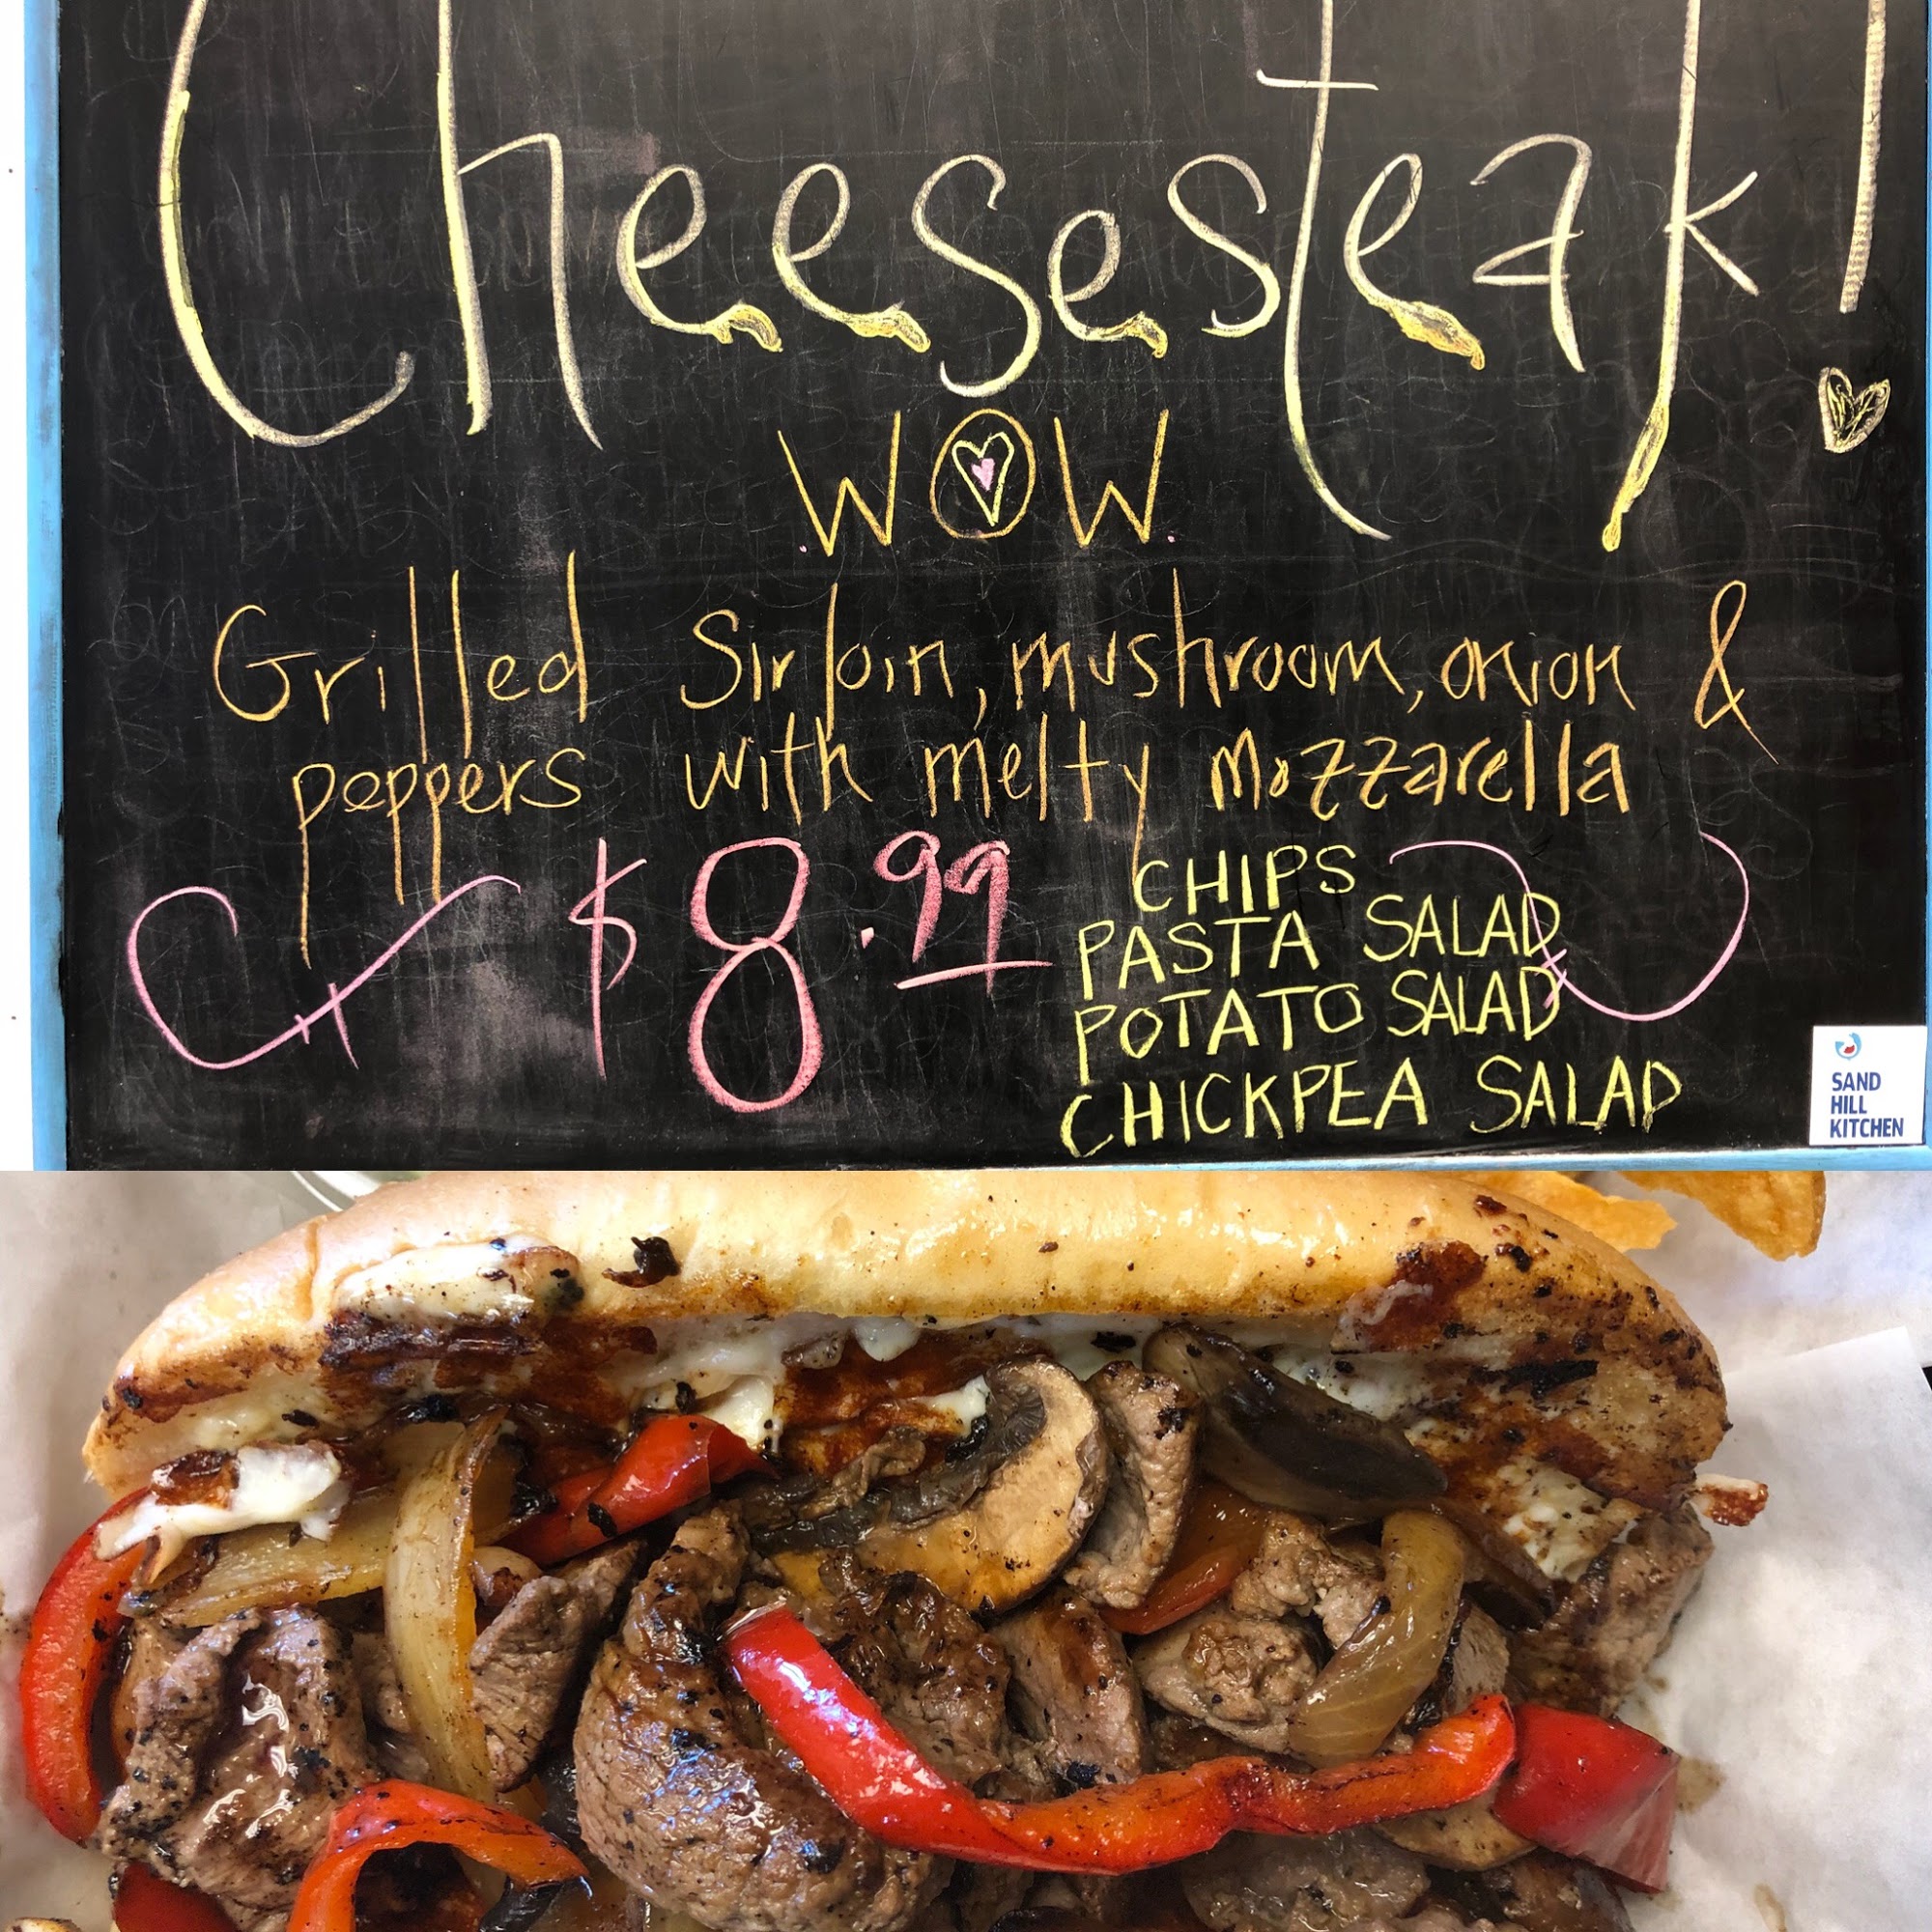 Cheesesteak!
WOW
Grilled Sirloin, mushroom, onion &
peppers with melty mozzarella
$8.99
CHIPS
PASTA SALAD
POTATO SALAD
CHICKPEA SALAD
SAND
HILL
KITCHEN